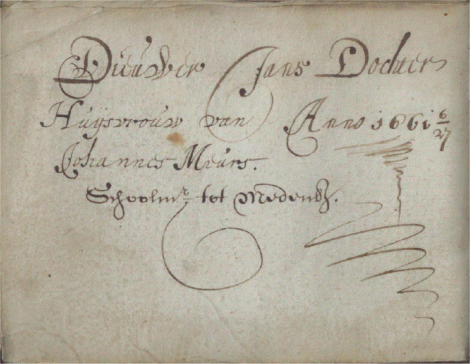 Dieuwer Jans Dochter
Huijsvrouw van Anno 1661 6/27
Johannes Meurs.
Schoolmr. tot Medenb.